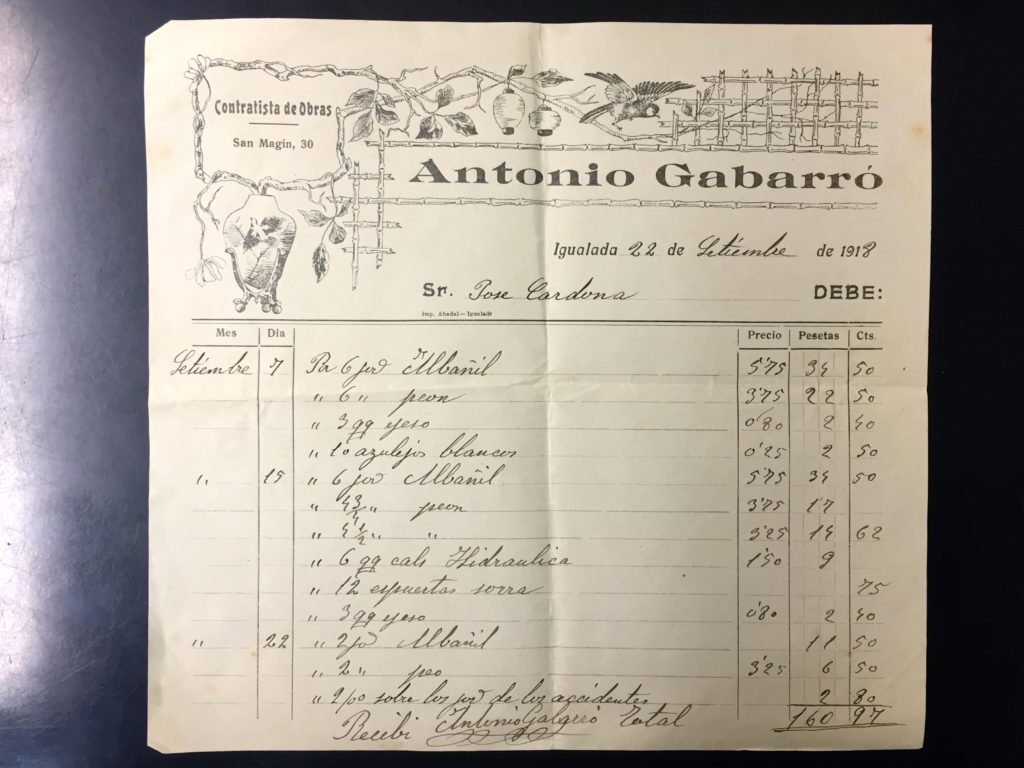 Contratista de Obras
San Magín, 30
Antonio Gabarró
Igualada 22 de Setiembre de 1918
Sr. Jose Cardona DEBE:
Imp. Abadal — Igualada
Mes Dia Precio Pesetas Cts.
Setiembre 7 Por 6 jor Albañil 5'75 34 50
" 6 " peon 3'75 22 50
" 3 qq yeso 0'80 2 40
" 10 azulejos blancos 0'25 2 50
" 15 " 6 jor Albañil 5'75 34 50
" 4 3/4 " peon 3'75 17
" 4 1/2 " " 3'25 14 62
" 6 qq cals Hidraulica 1'50 9
" 12 espuertas sorra 75
" 3 qq yeso 0'80 2 40
" 22 " 2 jor Albañil 11 50
" 2 " peo 3'25 6 50
" 2 p/o sobre los jor de los accidentes 2 80
Recibi Antonio Total 160 97